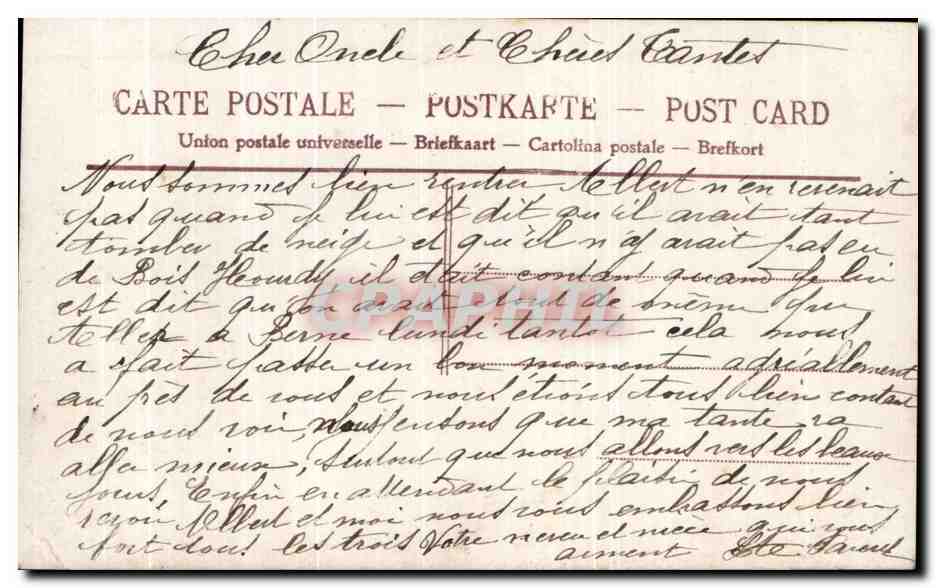 Cher Oncle et Chères Tantes
CARTE POSTALE — POSTKARTE — POST CARD
Union postale universelle — Briefkaart — Cartolina postale — Brefkort
Nous sommes bien rentrer Albert n'en revenait
pas quand je lui est dit qu'il avait tant
tomber de neige et qu'il n'y avait pas eu
de Bois Hourdy il était contant quand je lui
est dit qu'on avait tout de même pu
Aller a Berne lundi tantot cela nous
a fait passer un bon moment agréablement
au près de vous et nous étions tous bien contant
de nous voir, nous pensons que ma tante va
aller mieux, surtout que nous allons vers les beaux
jours, Enfin en attendant le plaisir de nous
revoir Albert et moi nous vous embrassons bien
fort tous les trois Votre neveu et niece qui vous
aiment
CPAPHIL